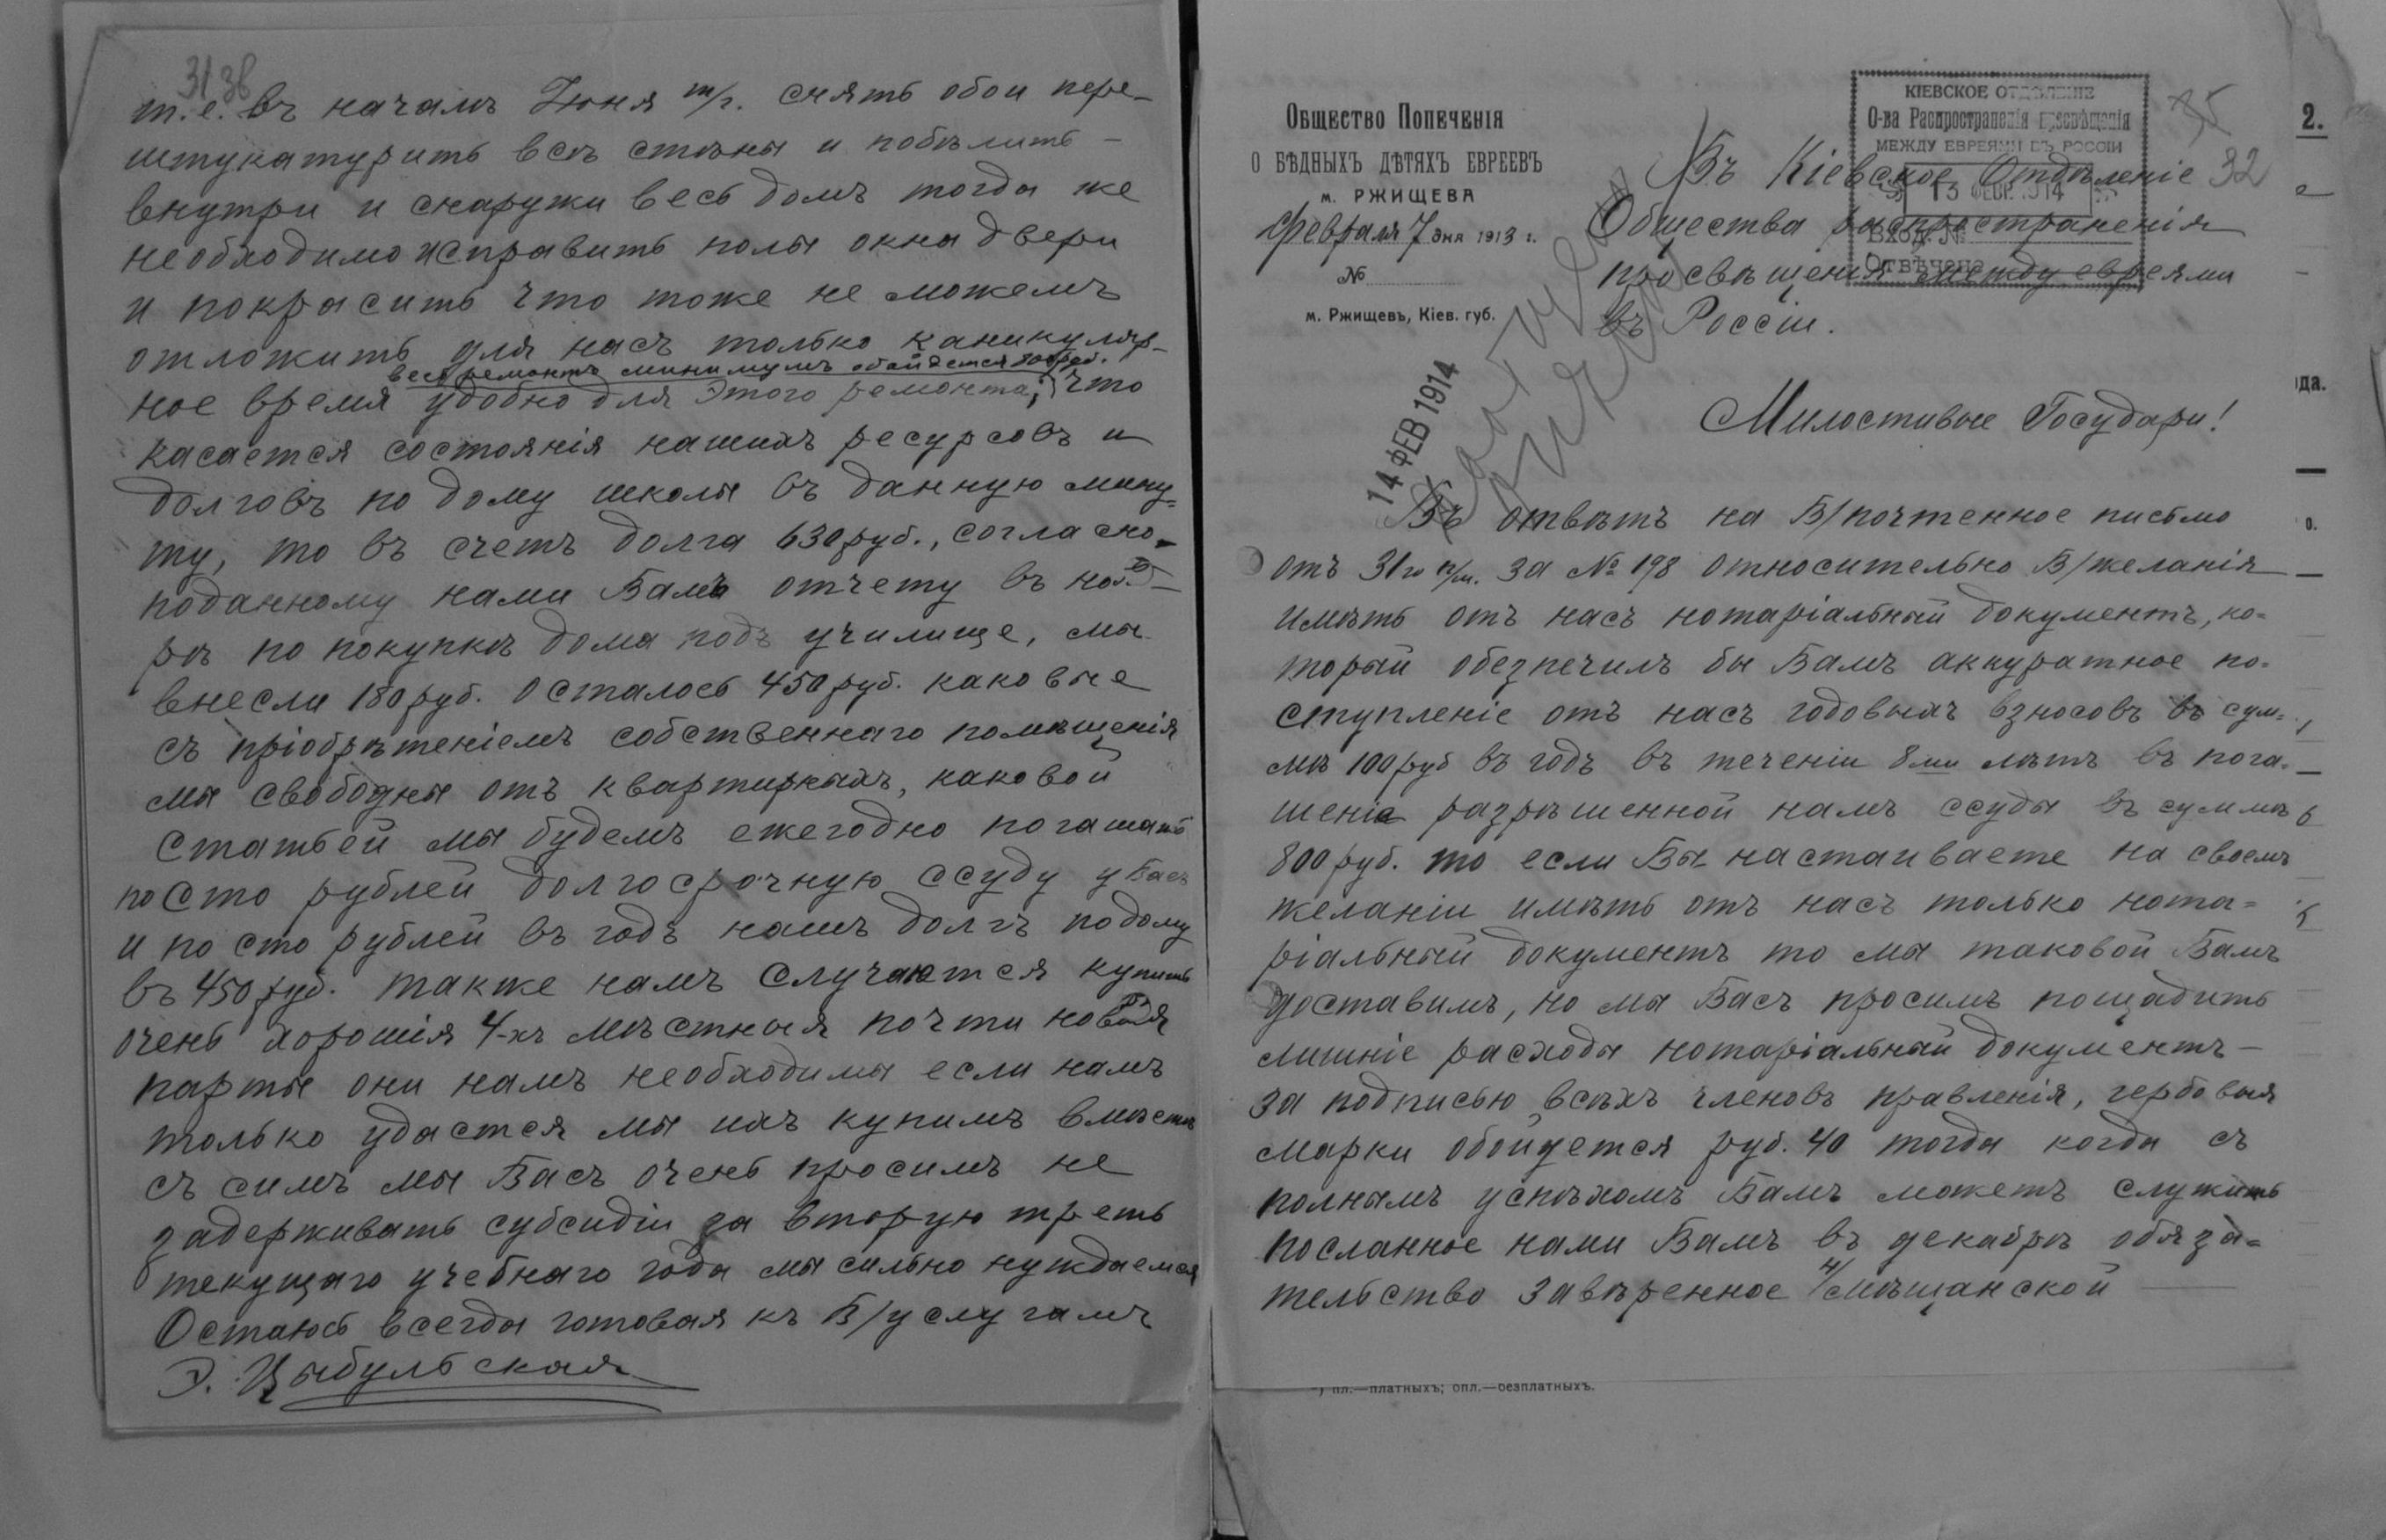 31 зв
т.е. въ началѣ Іюня т/г. снять обои пере-
штукатурить всѣ стѣны и побѣлить –
внутри и снаружи весь домъ тогда же
необходимо исправить полы окна двери
и покрасить что тоже не можемъ
отложить для насъ только каникуляр-
весь ремонтъ минимумъ обойдется руб.
ное время удобно для этого ремонта; что
касается состоянія нашихъ ресурсовъ и
долговъ по дому школы въ данную мину=
ту, то въ счетъ долга 630 руб., согласно-
поданному нами Вамъ отчету въ нояб-
рѣ по покупкѣ дома подъ училище, мы
внесли 180 руб. Осталось 450 руб. каковые
съ пріобрѣтеніемъ собственнаго помѣщенія
мы свободны отъ квартирныхъ, каковой
статьей мы будемъ ежегодно погашать
по сто рублей долгосрочную ссуду у Васъ
и по сто рублей въ годъ нашъ долгъ по дому
въ 450 руб. также намъ случаются купить
очень хорошія 4-хъ мѣстныя почти новыя
парты они намъ необходимы если намъ
только удастся мы ихъ купимъ вмѣстѣ
съ симъ мы Васъ очень просимъ не
задерживать субсидіи за вторую треть
текущаго учебнаго года мы сильно нуждаемся
Остаюсь всегда готовая къ В/услугамъ
Э. Цыбульская
Общество Попеченія
о бѣдныхъ дѣтяхъ евреевъ
м. РЖИЩЕВА
Февраля 7 дня 1913 г.
№
м. Ржищевъ, Кіев. губ.
КІЕВСКОЕ ОТДѢЛЕНІЕ
О-ва Распространенія просвѣщенія
МЕЖДУ ЕВРЕЯМИ ВЪ РОССІИ
13 ФЕВР. 1914
Вход. №
Отвѣчено
32
Въ Кіевское Отдѣленіе
Общества распространенія
просвѣщенія между евреями
въ Россіи.
14 ФЕВ 1914
Милостивые Государи!
Въ отвѣтъ на В/почтенное письмо
отъ 31го п/м. за № 198 относительно В/желанія
имѣть отъ насъ нотаріальный документъ, ко=
торый обезпечилъ бы Вамъ аккуратное по-
ступленіе отъ насъ годовыхъ взносовъ въ сум=
мѣ 100 руб въ годъ въ теченіи 8ми лѣтъ въ пога-
шеніе разрѣшенной намъ ссуды въ суммѣ
800 руб. то если Вы настаиваете на своемъ
желаніи имѣть отъ насъ только нота=
ріальный документъ то мы таковой Вамъ
доставимъ, но мы Васъ просимъ пощадить
лишніе расходы нотаріальный документъ –
за подписью всѣхъ членовъ правленія, гербовыя
марки обойдется руб. 40 тогда когда съ
полнымъ успѣхомъ Вамъ можетъ служить
посланное нами Вамъ въ декабрѣ обяза=
тельство завѣренное н/мѣщанской
2.
ода.
о.
пл.—платныхъ; опл.—безплатныхъ.